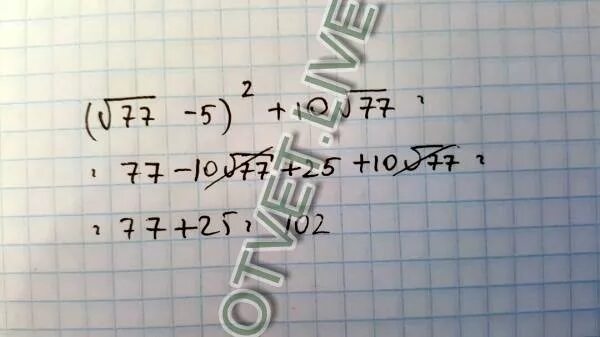 (√77 -5)² + 10√77 =
= 77 - 10√77 + 25 + 10√77 =
= 77 + 25 = 102
OTVET.LIVE